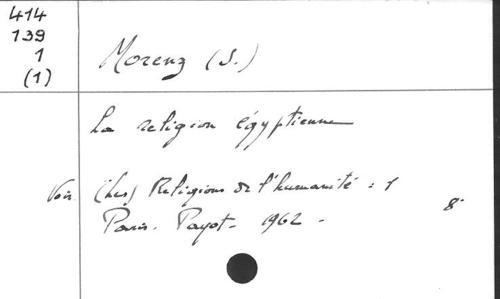 414
139
1
(1)
Morenz (S.)
La religion égyptienne
Voir (Les) Religions de l'humanité : 1
Paris. Payot. 1962.
8°